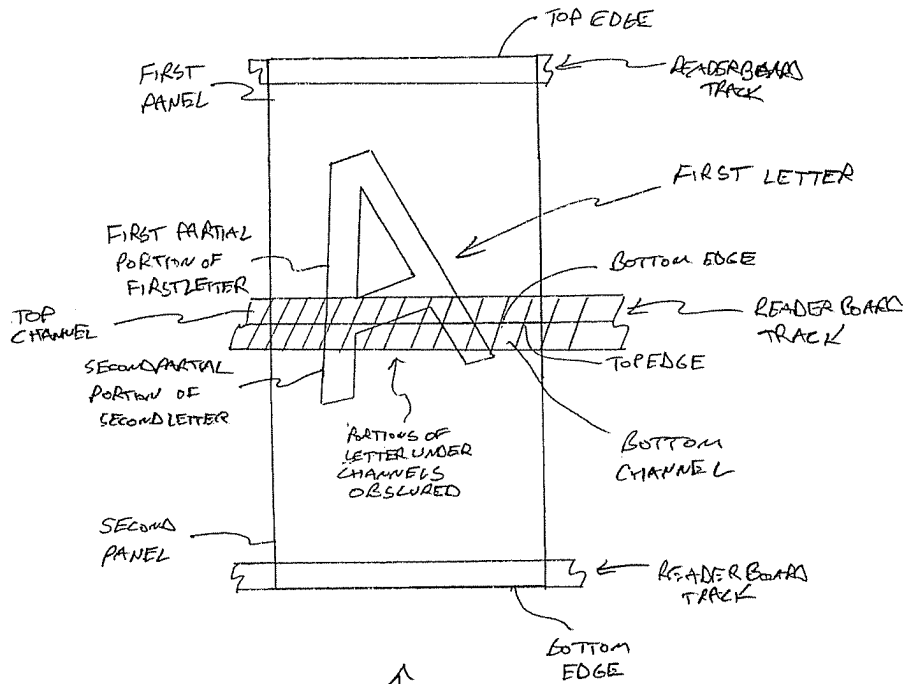 TOP EDGE
READERBOARD
TRACK
FIRST
PANEL
FIRST LETTER
FIRST PARTIAL
PORTION OF
FIRST LETTER
BOTTOM EDGE
TOP
CHANNEL
READERBOARD
TRACK
TOP EDGE
SECOND PARTIAL
PORTION OF
SECOND LETTER
PORTIONS OF
LETTER UNDER
CHANNELS
OBSCURED
BOTTOM
CHANNEL
SECOND
PANEL
READERBOARD
TRACK
BOTTOM
EDGE
A